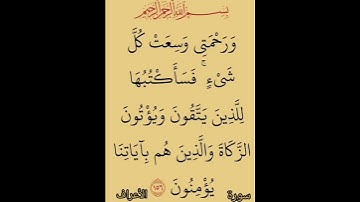 بسم الله الرحمن الرحيم
وَرَحْمَتِي وَسِعَتْ كُلَّ
شَيْءٍ ۚ فَسَأَكْتُبُهَا
لِلَّذِينَ يَتَّقُونَ وَيُؤْتُونَ
الزَّكَاةَ وَالَّذِينَ هُم بِآيَاتِنَا
يُؤْمِنُونَ ١٥٦
سورة الأعراف